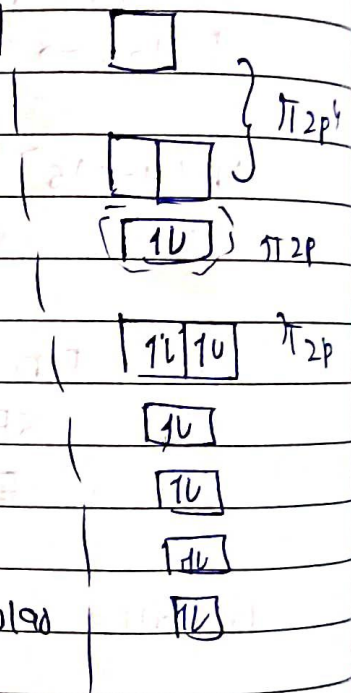 π2p*
1L π2p
1L 1L π2p
1L
1L
1L
1L